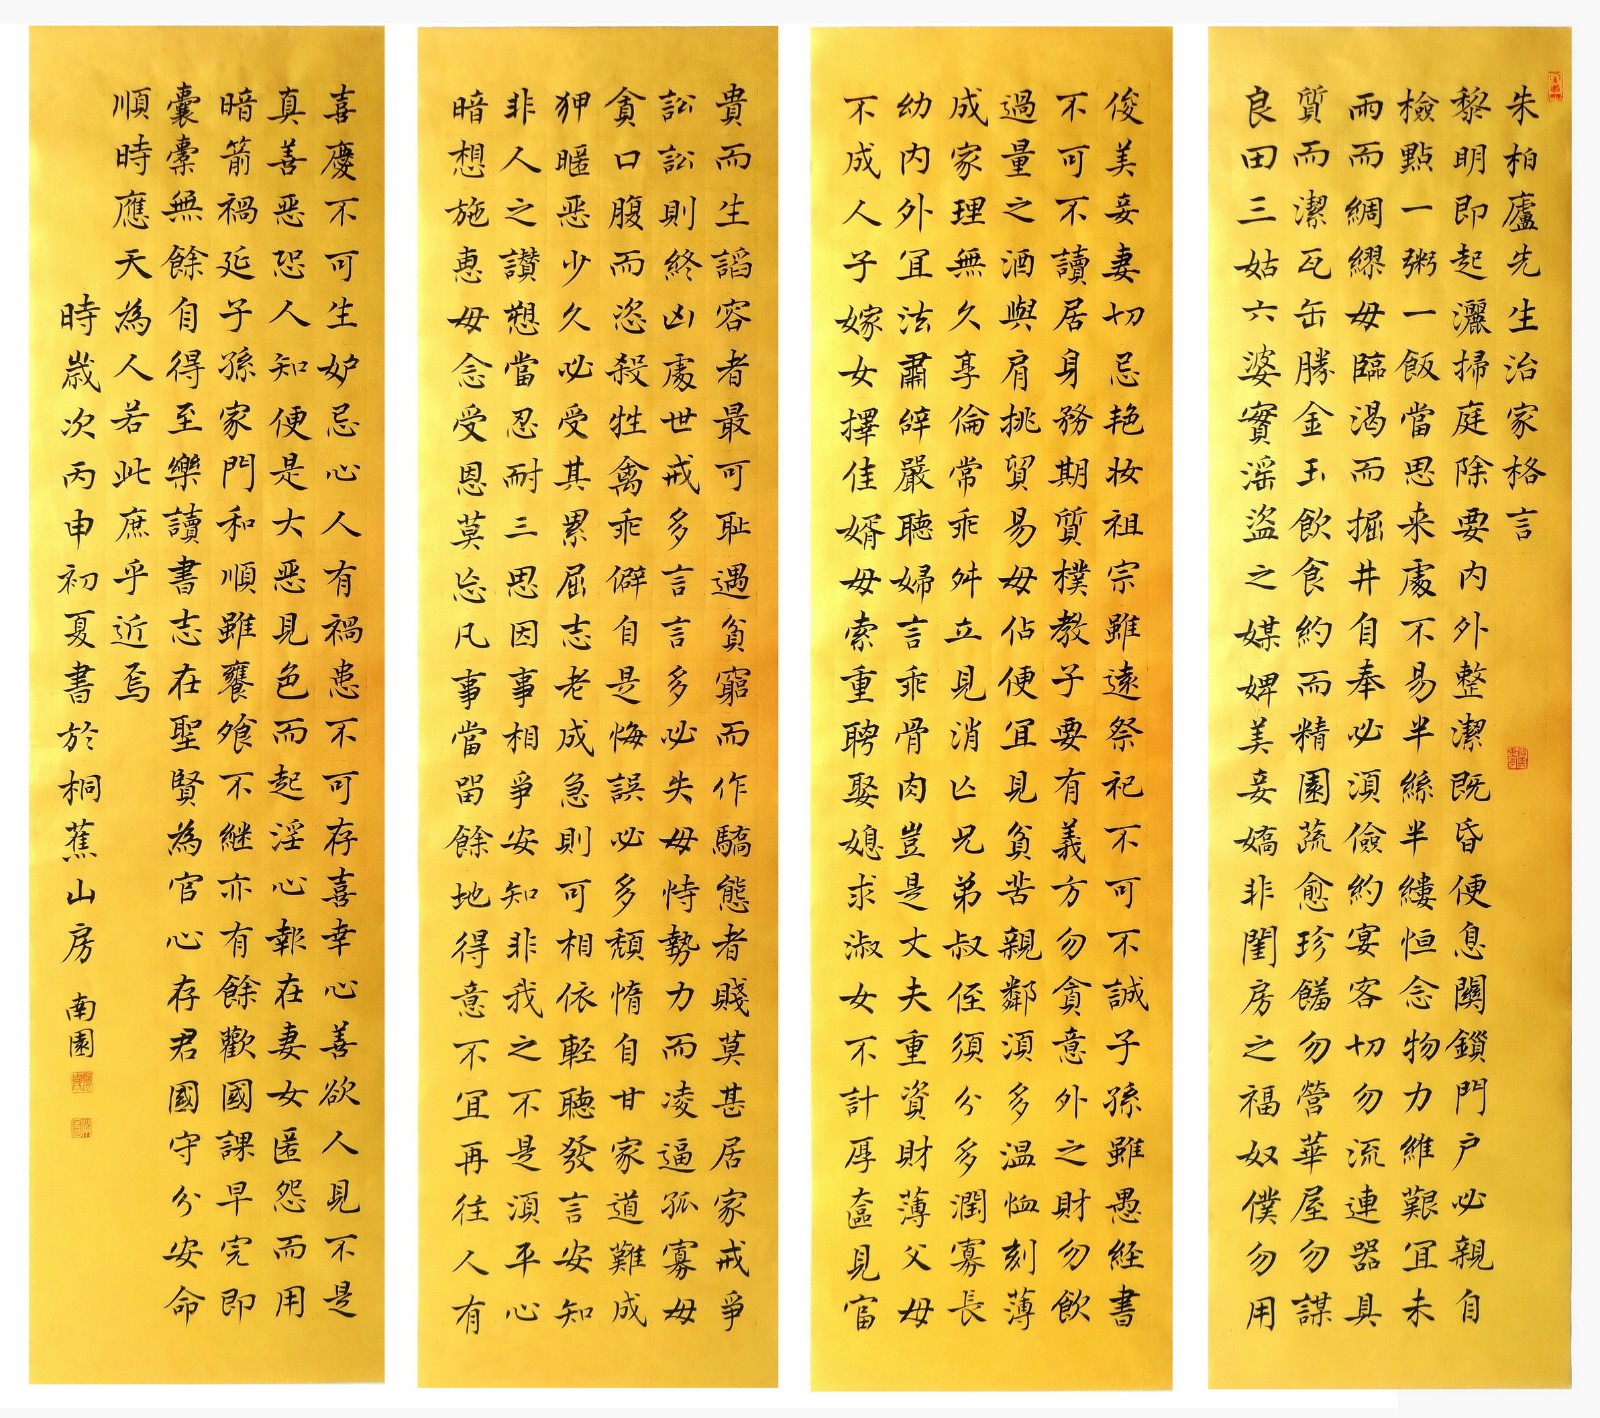 朱柏廬先生治家格言
黎明即起灑掃庭除要内外整潔既昏便息關鎖門户必親自
檢點一粥一飯當思来處不易半絲半縷恒念物力維艱宜未
雨而綢繆毋臨渴而掘井自奉必須儉約宴客切勿流連器具
質而潔瓦缶勝金玉飲食約而精園蔬愈珍饈勿營華屋勿謀
良田三姑六婆實淫盜之媒婢美妾嬌非閨房之福奴僕勿用
俊美妾妻切忌艳妆祖宗雖遠祭祀不可不誠子孫雖愚経書
不可不讀居身務期質樸教子要有義方勿貪意外之財勿飲
過量之酒與肩挑貿易毋佔便宜見貧苦親鄰須多温恤刻薄
成家理無久享倫常乖舛立見消亡兄弟叔侄須分多潤寡長
幼内外宜法肅辭嚴聽婦言乖骨肉豈是丈夫重資財薄父母
不成人子嫁女擇佳婿毋索重聘娶媳求淑女不計厚奩見富
貴而生諂容者最可耻遇貧窮而作驕態者賤莫甚居家戒爭
訟訟則終凶處世戒多言言多必失毋恃勢力而凌逼孤寡毋
貪口腹而恣殺牲禽乖僻自是悔誤必多頹惰自甘家道難成
狎暱恶少久必受其累屈志老成急則可相依軽聽發言安知
非人之讃愬當忍耐三思因事相爭安知非我之不是須平心
暗想施惠毋念受恩莫忘凡事當留餘地得意不宜再往人有
喜慶不可生妒忌心人有禍患不可存喜幸心善欲人見不是
真善恶恐人知便是大恶見色而起淫心報在妻女匿怨而用
暗箭禍延子孫家門和順雖饔飧不継亦有餘歡國課早完即
囊橐無餘自得至樂讀書志在聖賢為官心存君國守分安命
順時應天為人若此庶乎近焉
時歲次丙申初夏書於桐蕉山房 南園